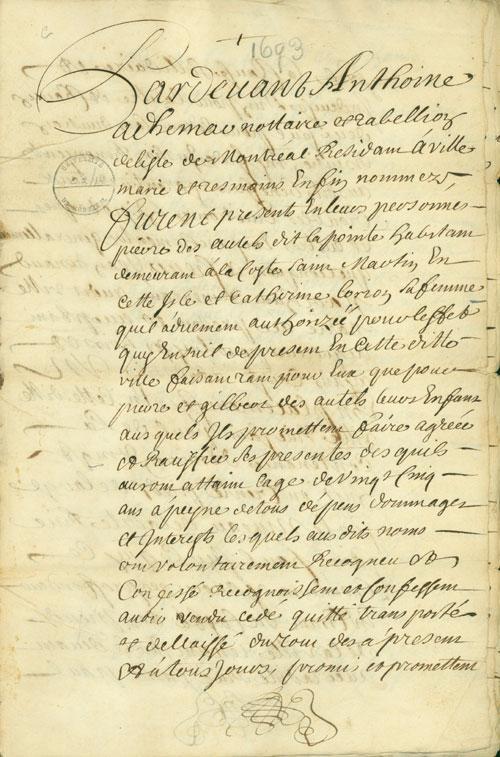 1693
Pardevant Anthoine
adhemar nottaire et tabellion
de lisle de Montréal Residant à ville
marie et tesmoins En fin nommez,
furent presents En leurs personnes
pierre des autels dit la pointe habitant
demeurant à la Coste Saint Martin En
cette Isle et Catherine lorion sa femme
qu'il a duement authorizée pour l'effet
quy Ensuit de present En Cette ditte
ville faisant tant pour Eux que pour
pierre et gilbert des autels leurs Enfans
ausquels Ils promettent faire agréer
et Ratiffier Ses presentes des quils
auront attaint lage de vingt Cinq
ans à peyne de tous dépens dommages
et Interests lesquels ausdits noms
ont volontairement Recogneu et
Confessé Recognoissent et Confessent
avoir vendu cédé quitté transporté
et dellaissé du tout des a présent
et à tous Jours, promis et promettent